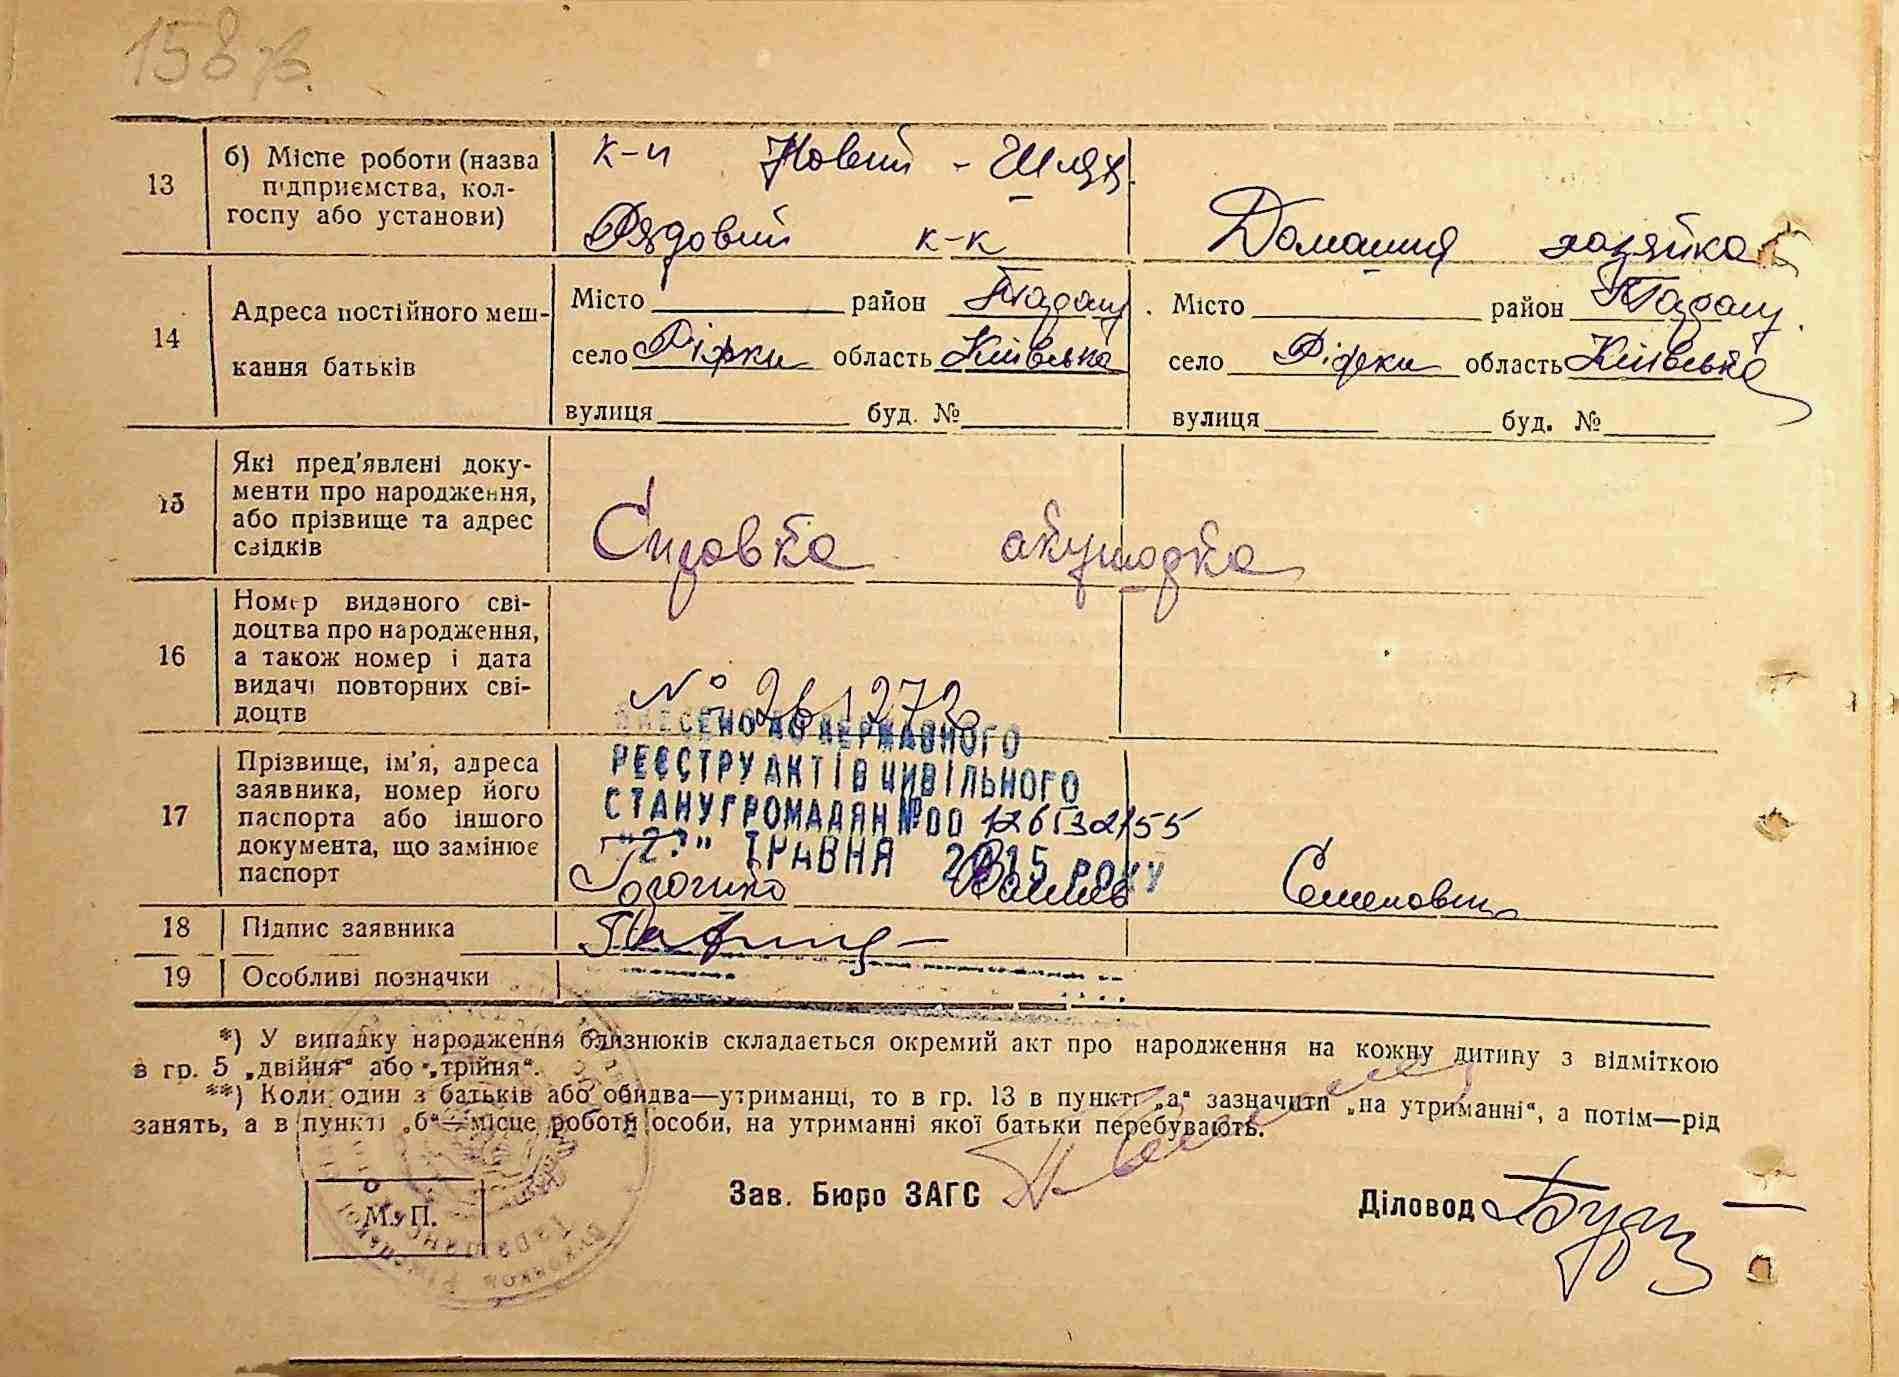 158 зв.
13
б) Місце роботи (назва підприємства, колгоспу або установи)
к-п Новий - Шлях
Рядовий к-к
Домашня хозяйка
14
Адреса постійного мешкання батьків
Місто район
село Ріжки область Київська
вулиця буд. №
Місто район
село Ріжки область Київська
вулиця буд. №
15
Які пред'явлені документи про народження, або прізвище та адрес свідків
Справка акушорка
16
Номер виданого свідоцтва про народження, а також номер і дата видачі повторних свідоцтв
№ 261273
ВНЕСЕНО ДО ДЕРЖАВНОГО
РЕЄСТРУ АКТІВ ЦИВІЛЬНОГО
СТАНУ ГРОМАДЯН №00126132155
ТРАВНЯ 2015 РОКУ
17
Прізвище, ім'я, адреса заявника, номер його паспорта або іншого документа, що замінює паспорт
Семенович
18
Підпис заявника
19
Особливі позначки
*) У випадку народження близнюків складається окремий акт про народження на кожну дитину з відміткою
в гр. 5 „двійня“ або „трійня“.
**) Коли один з батьків або обидва—утриманці, то в гр. 13 в пункті „а“ зазначити „на утриманні“, а потім—рід
занять, а в пункті „б“—місце роботи особи, на утриманні якої батьки перебувають.
М. П.
Зав. Бюро ЗАГС
Діловод